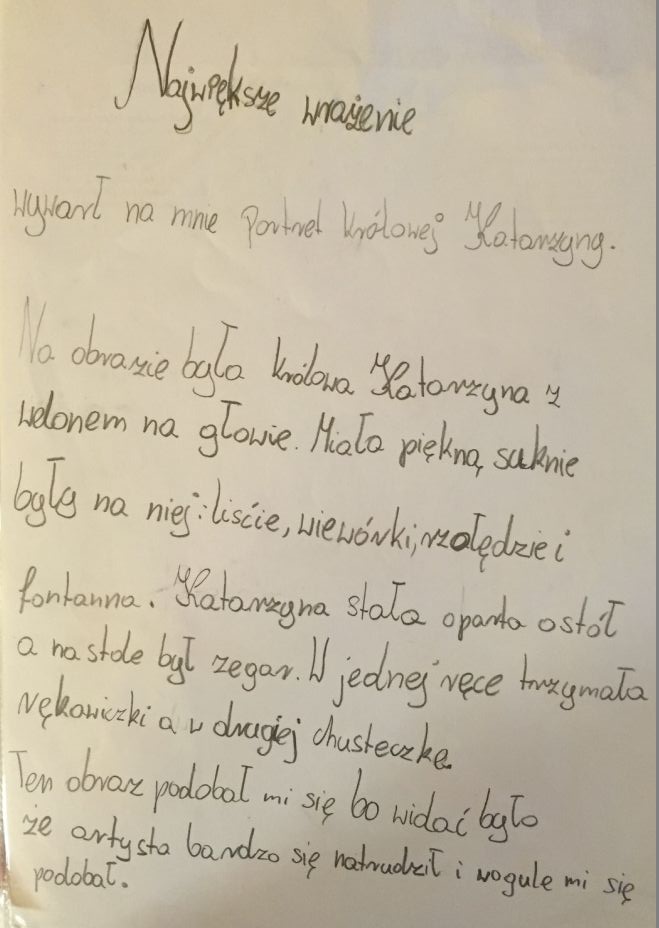 Największe wrażenie
wywarł na mnie Portret królowej Katarzyny.
Na obrazie była królowa Katarzyna z
welonem na głowie. Miała piękną suknie
były na niej: liście, wiewórki, rzołędzie i
fontanna. Katarzyna stała oparta ostół
a na stole był zegar. W jednej ręce trzymała
rękawiczki a w drugiej chusteczkę.
Ten obraz podobał mi się bo widać było
że artysta bardzo się natrudził i wogule mi się
podobał.